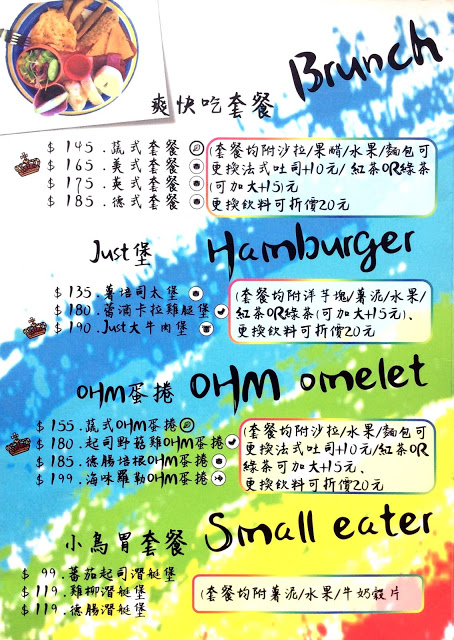 Brunch
爽快吃套餐
$ 145.蔬式套餐
$ 165.美式套餐
$ 175.英式套餐
$ 185.德式套餐
(套餐均附沙拉/果醋/水果/麵包可
更換法式吐司+10元/紅茶OR綠茶
(可加大+15)元
更換飲料可折價20元
Just堡 Hamburger
$ 135.薯培司太堡
$ 180.莎酒卡拉雞腿堡
$ 190.Just大牛肉堡
(套餐均附洋芋塊/薯泥/水果/
紅茶OR綠茶(可加大+15元)、
更換飲料可折價20元
OHM蛋捲 OHM omelet
$ 155.蔬式OHM蛋捲
$ 180.起司野菇雞OHM蛋捲
$ 185.德腸培根OHM蛋捲
$ 199.海味羅勒OHM蛋捲
(套餐均附沙拉/水果/麵包可
更換法式吐司+10元/紅茶OR
綠茶可加大+15元、
更換飲料可折價20元
小鳥胃套餐 Small eater
$ 99.蕃茄起司潛艇堡
$ 119.雞柳潛艇堡
$ 119.德腸潛艇堡
(套餐均附薯泥/水果/牛奶穀片